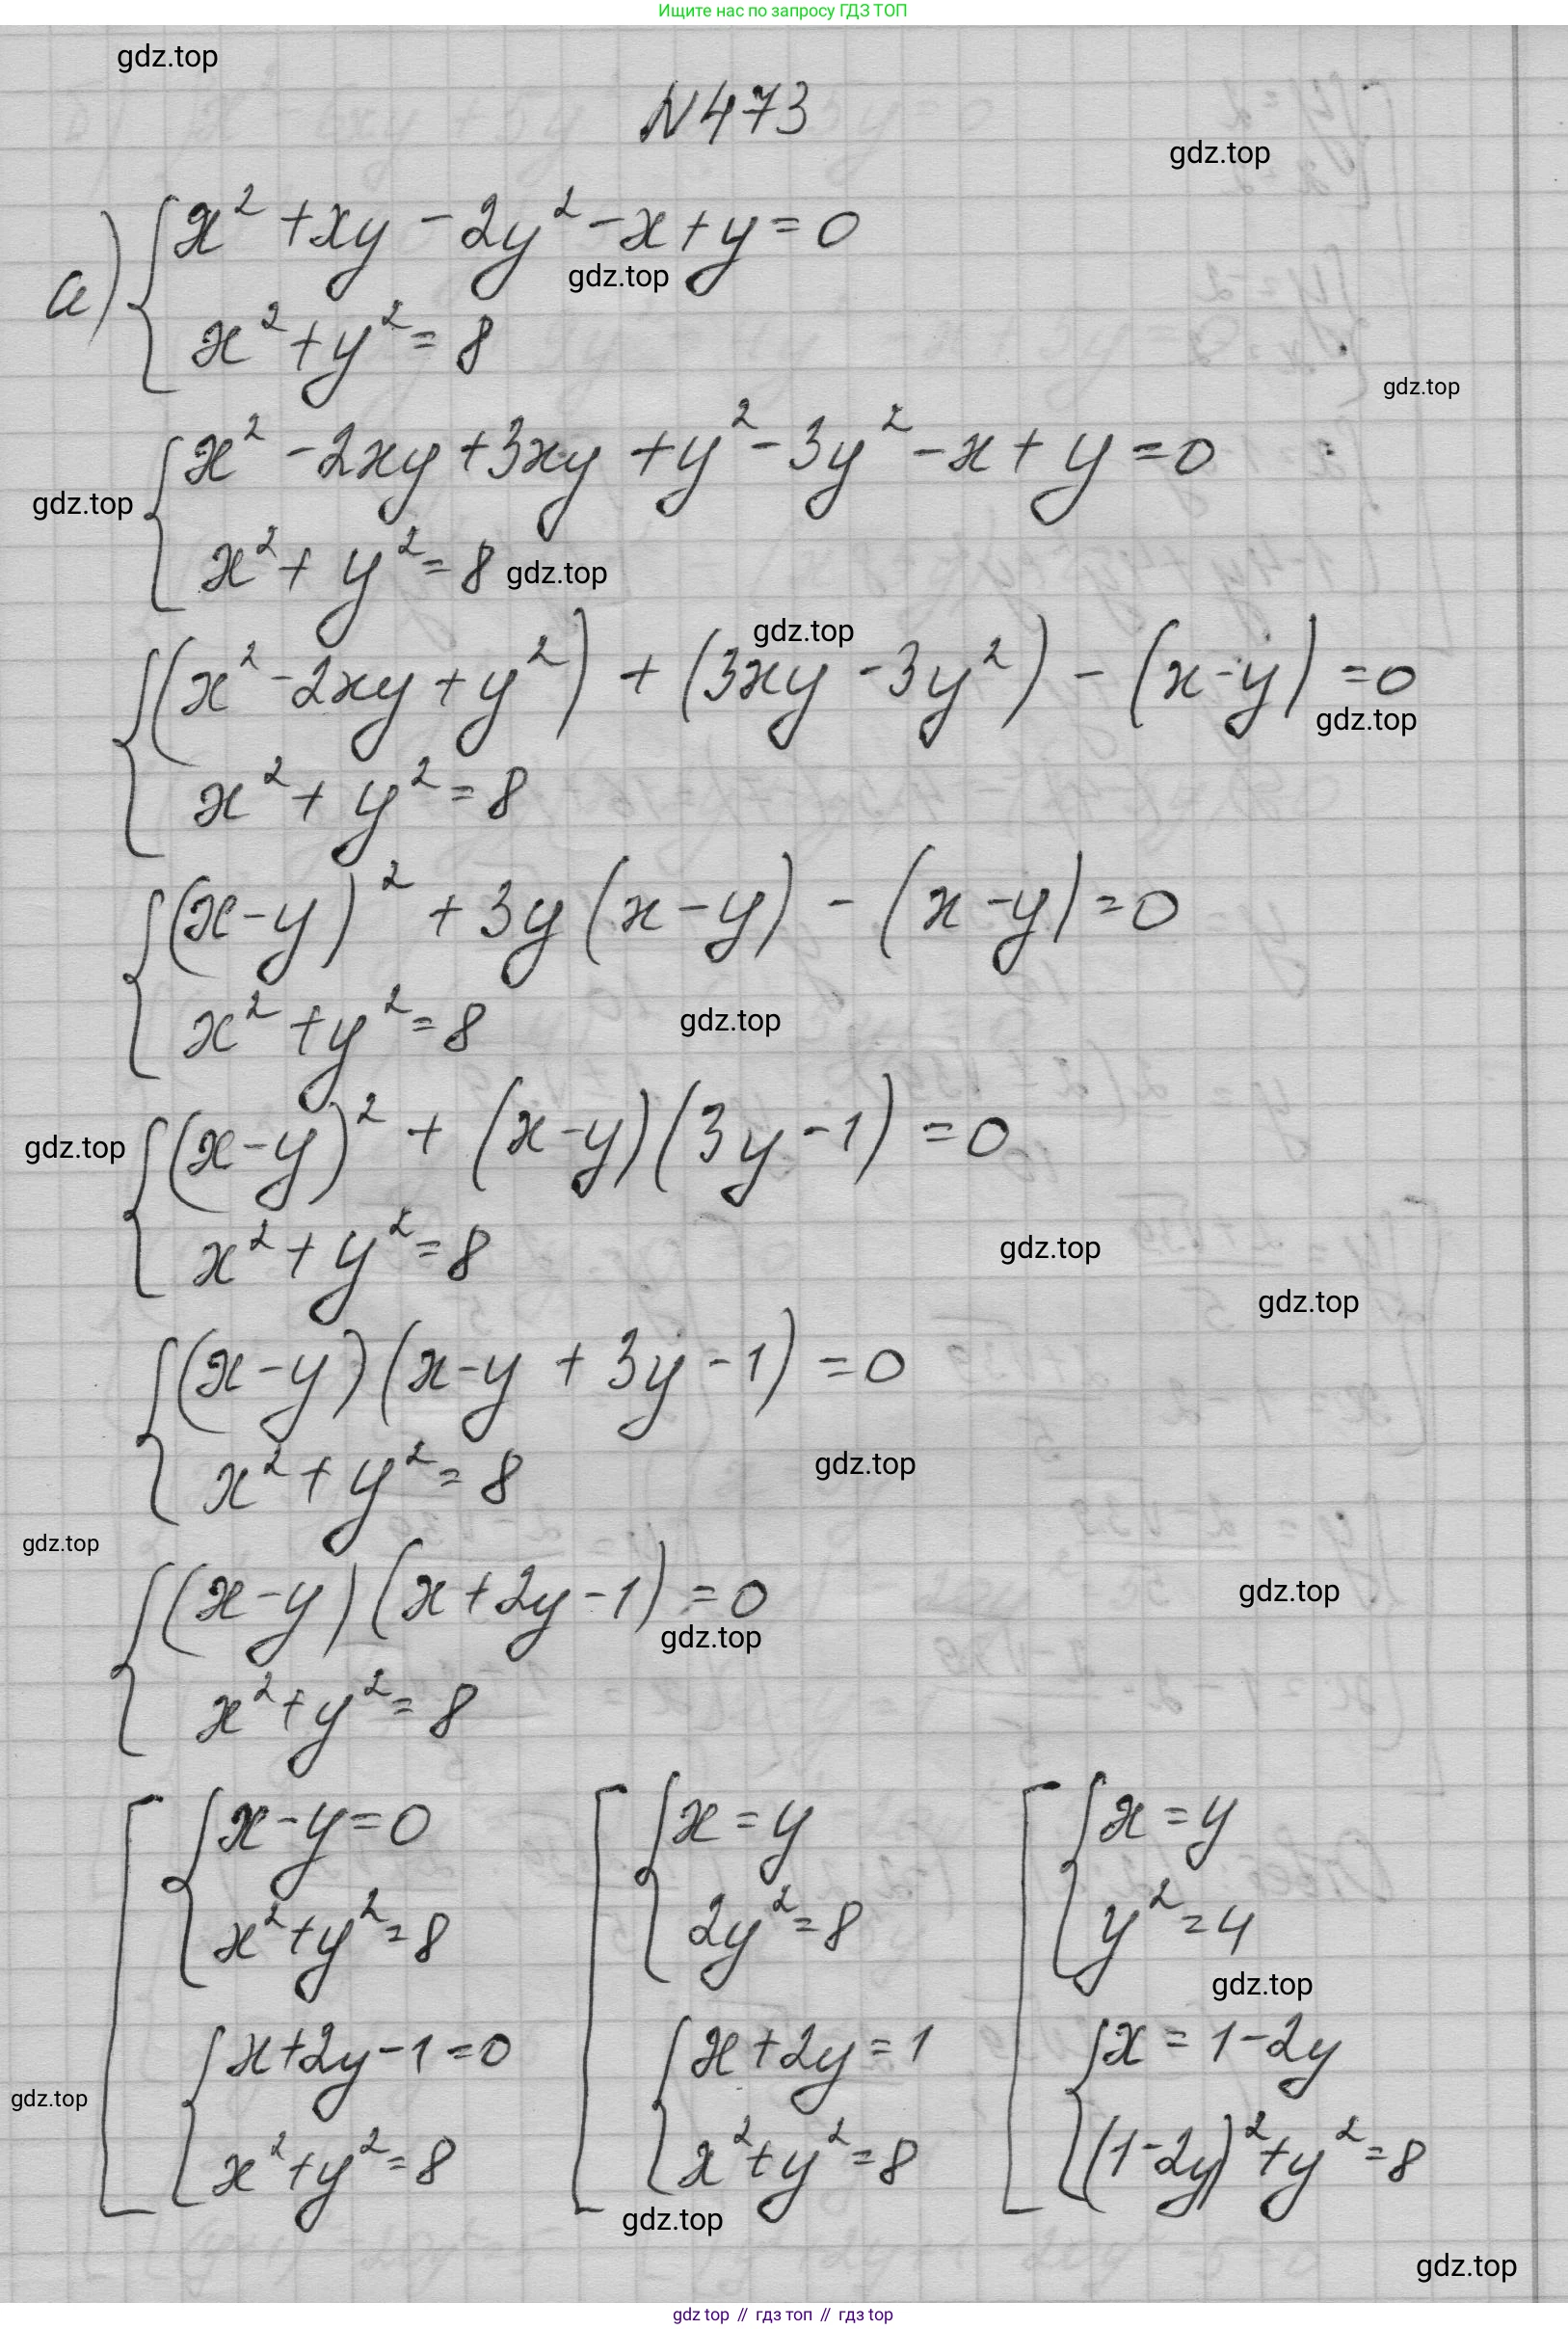 Ищите нас по запросу ГДЗ ТОП
gdz.top
N473
gdz.top
а) { x² + xy - 2y² - x + y = 0
gdz.top
x² + y² = 8
gdz.top
{ x² - 2xy + 3xy + y² - 3y² - x + y = 0
gdz.top
x² + y² = 8 gdz.top
gdz.top
{ (x² - 2xy + y²) + (3xy - 3y²) - (x - y) = 0
gdz.top
x² + y² = 8
{ (x - y)² + 3y(x - y) - (x - y) = 0
x² + y² = 8
gdz.top
gdz.top
{ (x - y)² + (x - y)(3y - 1) = 0
x² + y² = 8
gdz.top
gdz.top
{ (x - y)(x - y + 3y - 1) = 0
x² + y² = 8
gdz.top
gdz.top
{ (x - y)(x + 2y - 1) = 0
gdz.top
gdz.top
x² + y² = 8
[ { x - y = 0 [ { x = y [ { x = y
x² + y² = 8 2y² = 8 y² = 4
gdz.top
{ x + 2y - 1 = 0 { x + 2y = 1 { x = 1 - 2y
gdz.top
x² + y² = 8 x² + y² = 8 (1 - 2y)² + y² = 8
gdz.top
gdz.top
gdz top // гдз топ // гдз top